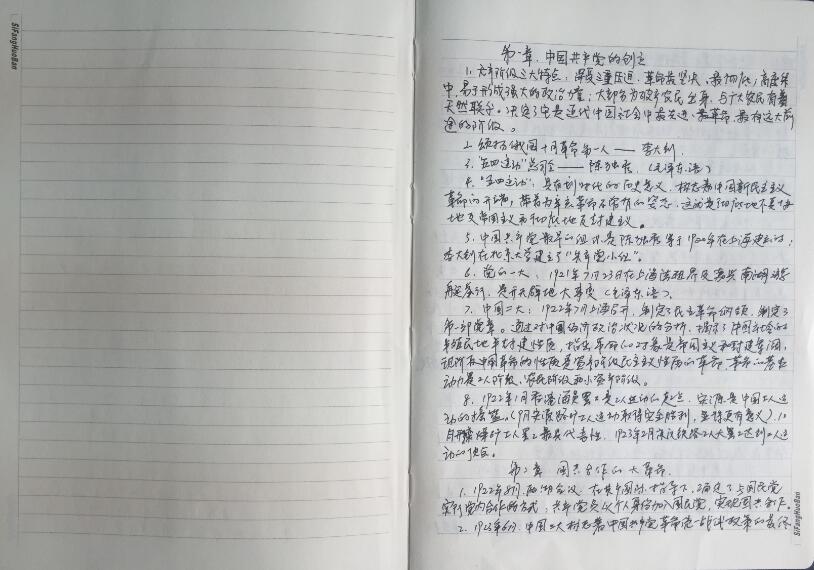 SiFangHuaBan
第一章、中国共产党的创立
1. 无产阶级三大特点：深受三重压迫，革命最坚决、最彻底；高度集
中，易于形成强大的政治力量；大部分为破产农民出身，与广大农民有着
天然联系。决定了它是近代中国社会中最先进、最革命、最有远大前
途的阶级。
2. 颂扬俄国十月革命第一人 —— 李大钊。
3. "五四运动"总司令 —— 陈独秀。（毛泽东语）
4. "五四运动"：具有划时代的历史意义，标志着中国新民主主义
革命的开端，带着为辛亥革命不曾有的姿态，这就是彻底地不妥协
地反帝国主义和彻底地反封建主义。
5. 中国共产党最早的组织是陈独秀等于1920年在上海建立的；
李大钊在北京大学建立了"共产党小组"。
6. 党的一大：1921年7月23日在上海法租界及嘉兴南湖游
船举行，是开天辟地大事变（毛泽东语）。
7. 中国二大：1922年7月上海召开，制定了民主革命的纲领，制定了
第一部党章。通过对中国经济政治状况的分析，揭示了中国社会的
半殖民地半封建性质，指出革命的对象是帝国主义和封建军阀，
现阶段中国革命的性质是资产阶级民主主义性质的革命，革命的
动力是工人阶级、农民阶级和小资产阶级。
8. 1922年1月香港海员罢工是工人运动的起点，安源是中国工人运
动的摇篮。（9月安源路矿工人运动取得完全胜利，
月开滦煤矿工人罢工最具代表性，1923年2月京汉铁路工人大罢工达到工人运
动的顶点。
第二章 国共合作的大革命
1. 1922年8月，西湖会议，在共产国际指导下，确定了与国民党
实行党内合作的方式：共产党员以个人身份加入国民党，实现国共合作。
2. 1923年6月，中国三大标志着中国共产党革命统一战线政策的最终
SiFangHuaBan